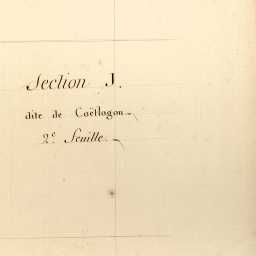 Section J.
dite de Coëtlogon.
2e Feuille.